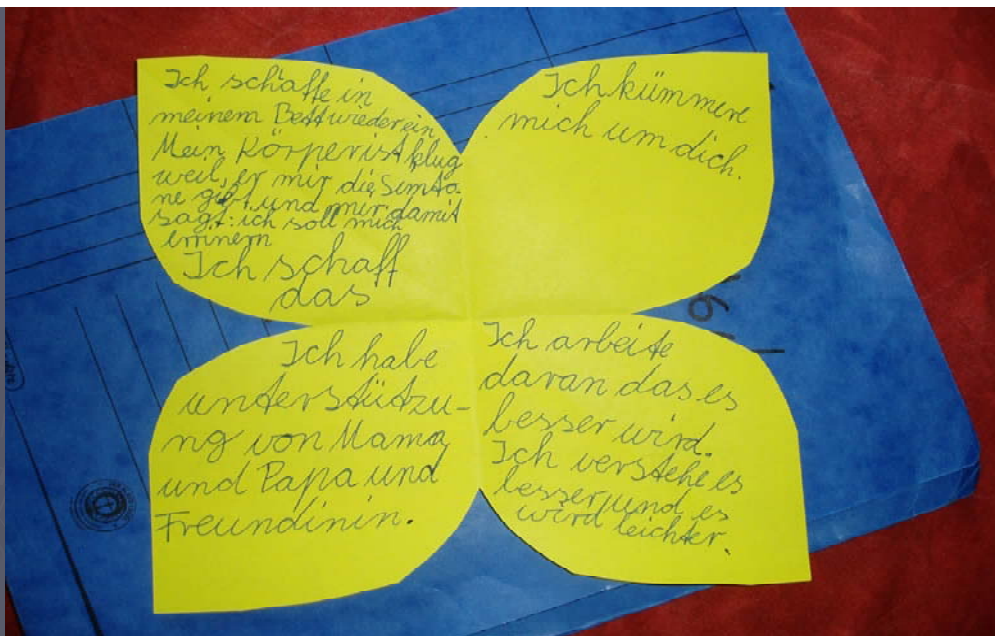 Ich schaffe in
meinem Bett wieder ein
Mein Körper ist klug
weil, er mir die Simto
ne gibt und mir damit
sagt: ich soll mich
erinnern
Ich schaff
das
Ich kümmere
mich um dich.
Ich habe
unterstützu-
ng von Mama
und Papa und
Freundinin.
Ich arbeite
daran das es
besser wird.
Ich verstehe es
besser und es
wird leichter.